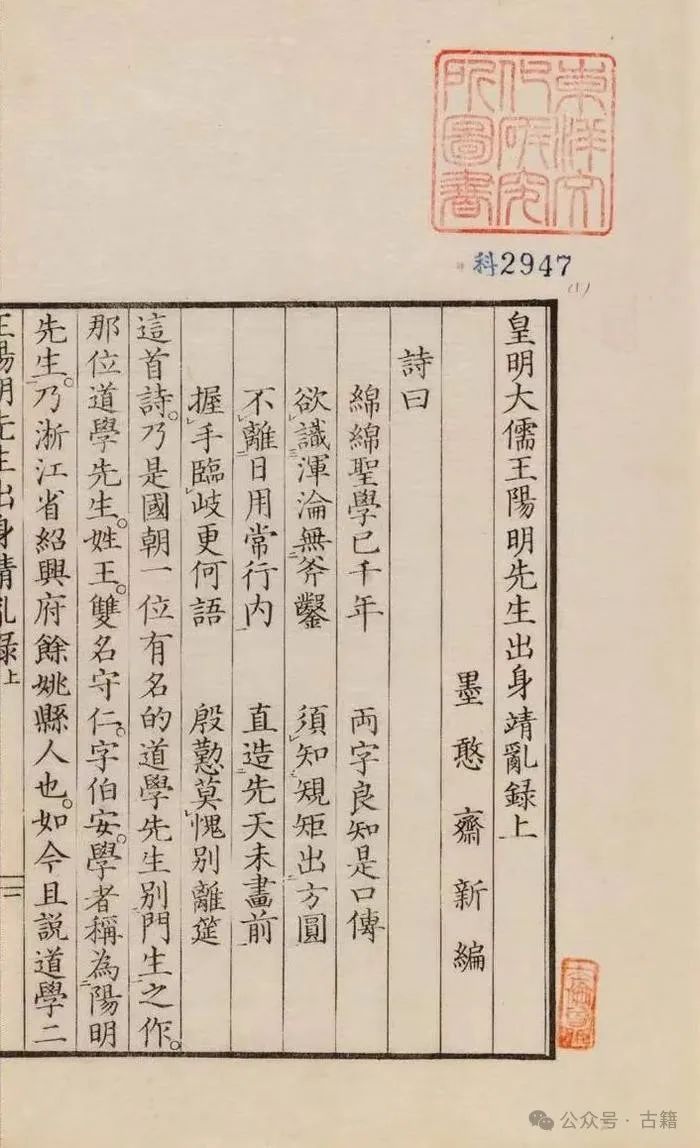 東洋文
化研究
所圖書
科2947
(1)
皇明大儒王陽明先生出身靖亂録上
墨憨齋新編
詩曰
綿綿聖學已千年　兩字良知是口傳
欲識渾淪無斧鑿　須知規矩出方圓
不離日用常行內　直造先天未畫前
握手臨歧更何語　殷懃莫愧別離筵
這首詩。乃是國朝一位有名的道學先生別門生之作。
那位道學先生。姓王。雙名守仁。字伯安。學者稱為陽明
先生。乃浙江省紹興府餘姚縣人也。如今且說道學二
王陽明先生出身靖亂録上
公众号·古籍